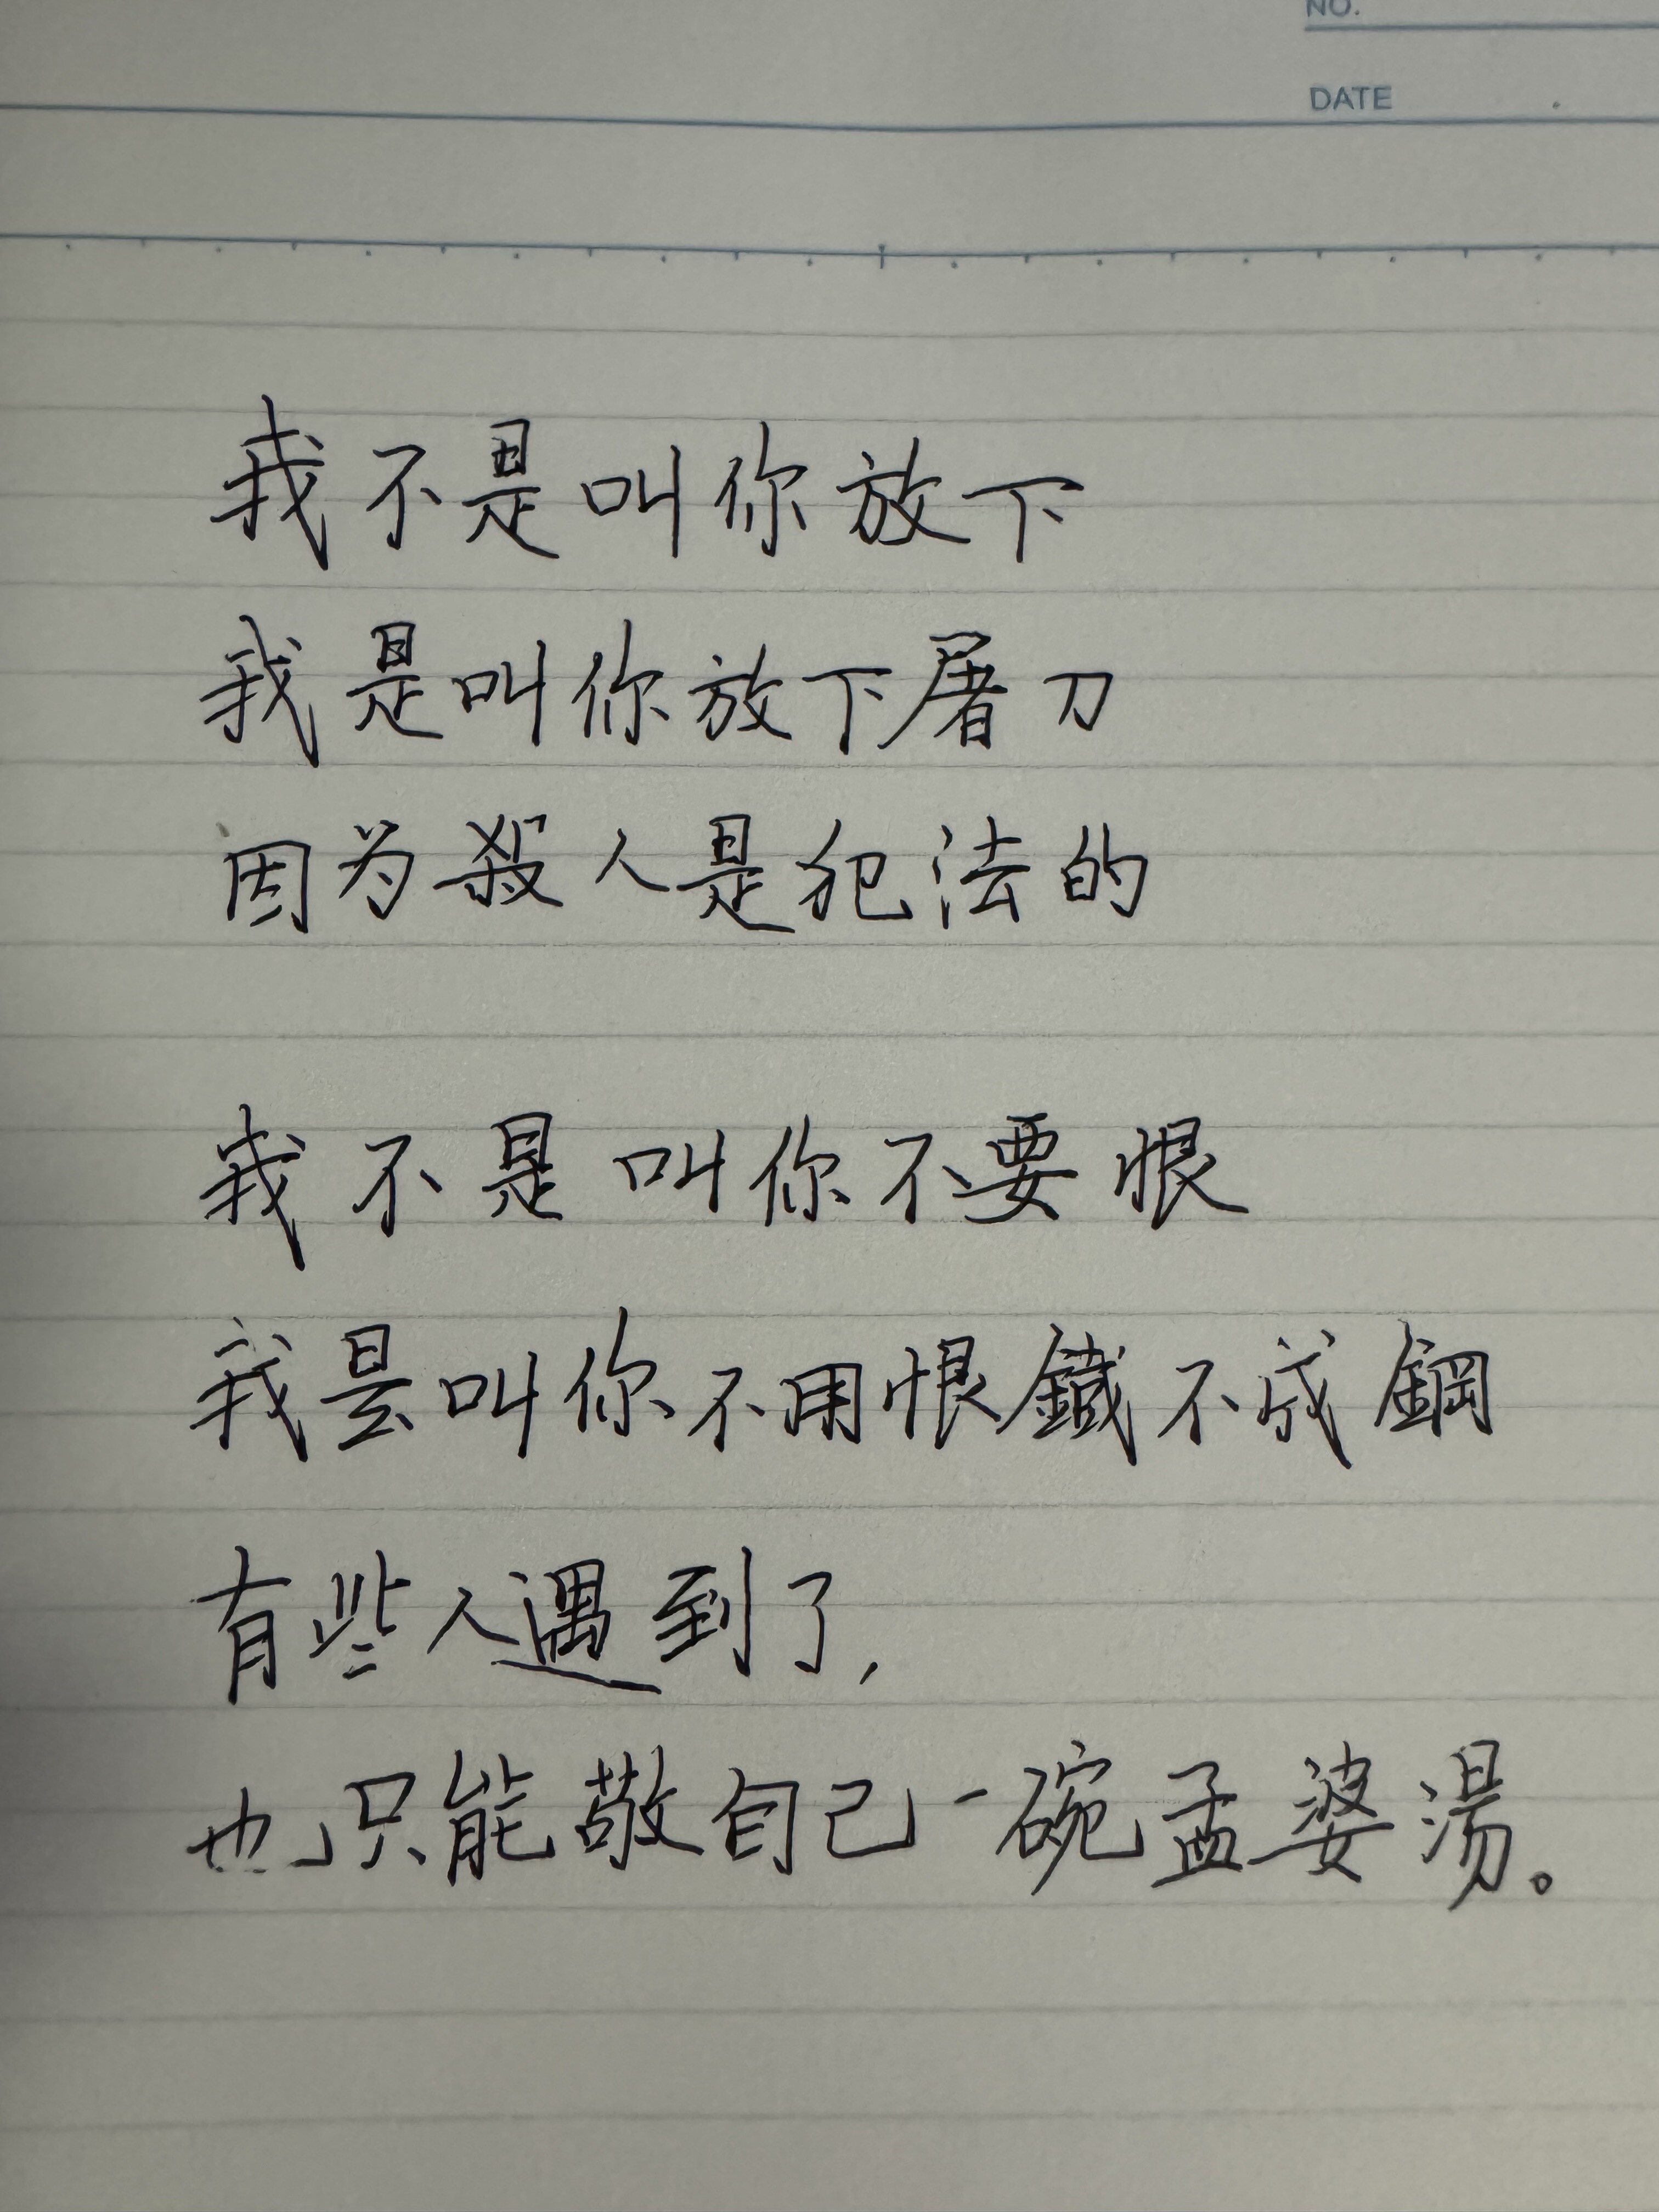 NO.
DATE
我不是叫你放下
我是叫你放下屠刀
因为殺人是犯法的
我不是叫你不要恨
我是叫你不用恨鐵不成鋼
有些人遇到了，
也只能敬自己一碗孟婆湯。